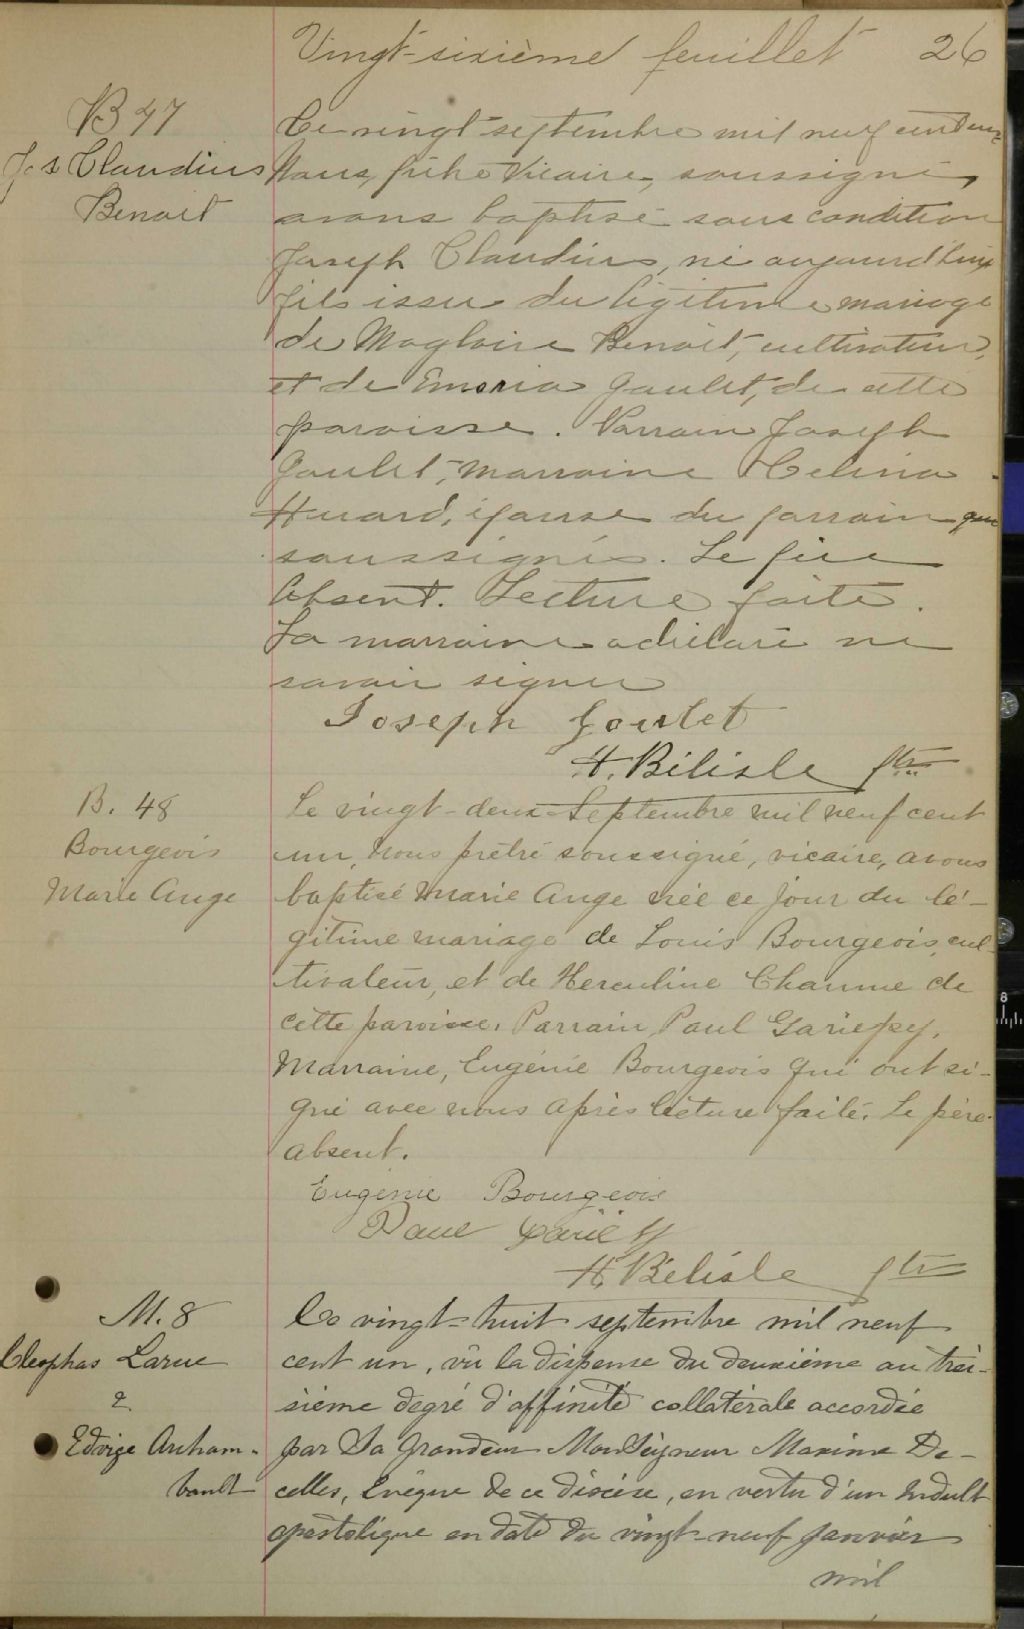 Vingt-sixième feuillet 26
B 47
Jos Claudius
Benoit
Ce vingt septembre mil neuf cent un
Nous, prêtre Vicaire, soussigné,
avons baptisé sous condition
Joseph Claudius, né aujourd'hui
fils issu du légitime mariage
de Magloire Benoit, cultivateur,
et de Emeria Goulet, de cette
paroisse. Parrain Joseph
Goulet, marraine Celina
Huard, épouse du parrain que
soussignés. Le père
Absent. Lecture faite.
La marraine a déclaré ne
savoir signer
Joseph Goulet
H. Bélisle ptre
B. 48
Bourgeois
Marie Ange
Le vingt-deux Septembre mil neuf cent
un, nous prêtre soussigné, vicaire, avons
baptisé Marie Ange née ce jour du lé-
gitime mariage de Louis Bourgeois, cul-
tivateur, et de Herculine Chaume de
cette paroisse. Parrain, Paul Gariepy,
Marraine, Eugénie Bourgeois qui ont si-
gné avec nous après lecture faite. Le père
absent.
Eugénie Bourgeois
Paul Gariépy
H. Bélisle ptre
M. 8
Cleophas Larue
&
Edwige Archam-
bault
Le vingt-huit septembre mil neuf
cent un, vû la dispense du deuxième au troi-
sième degré d'affinité collatérale accordée
par Sa Grandeur MonSeigneur Maxime De-
celles, Evêque de ce diocèse, en vertu d'un Indult
apostolique en date du vingt-neuf Janvier
mil